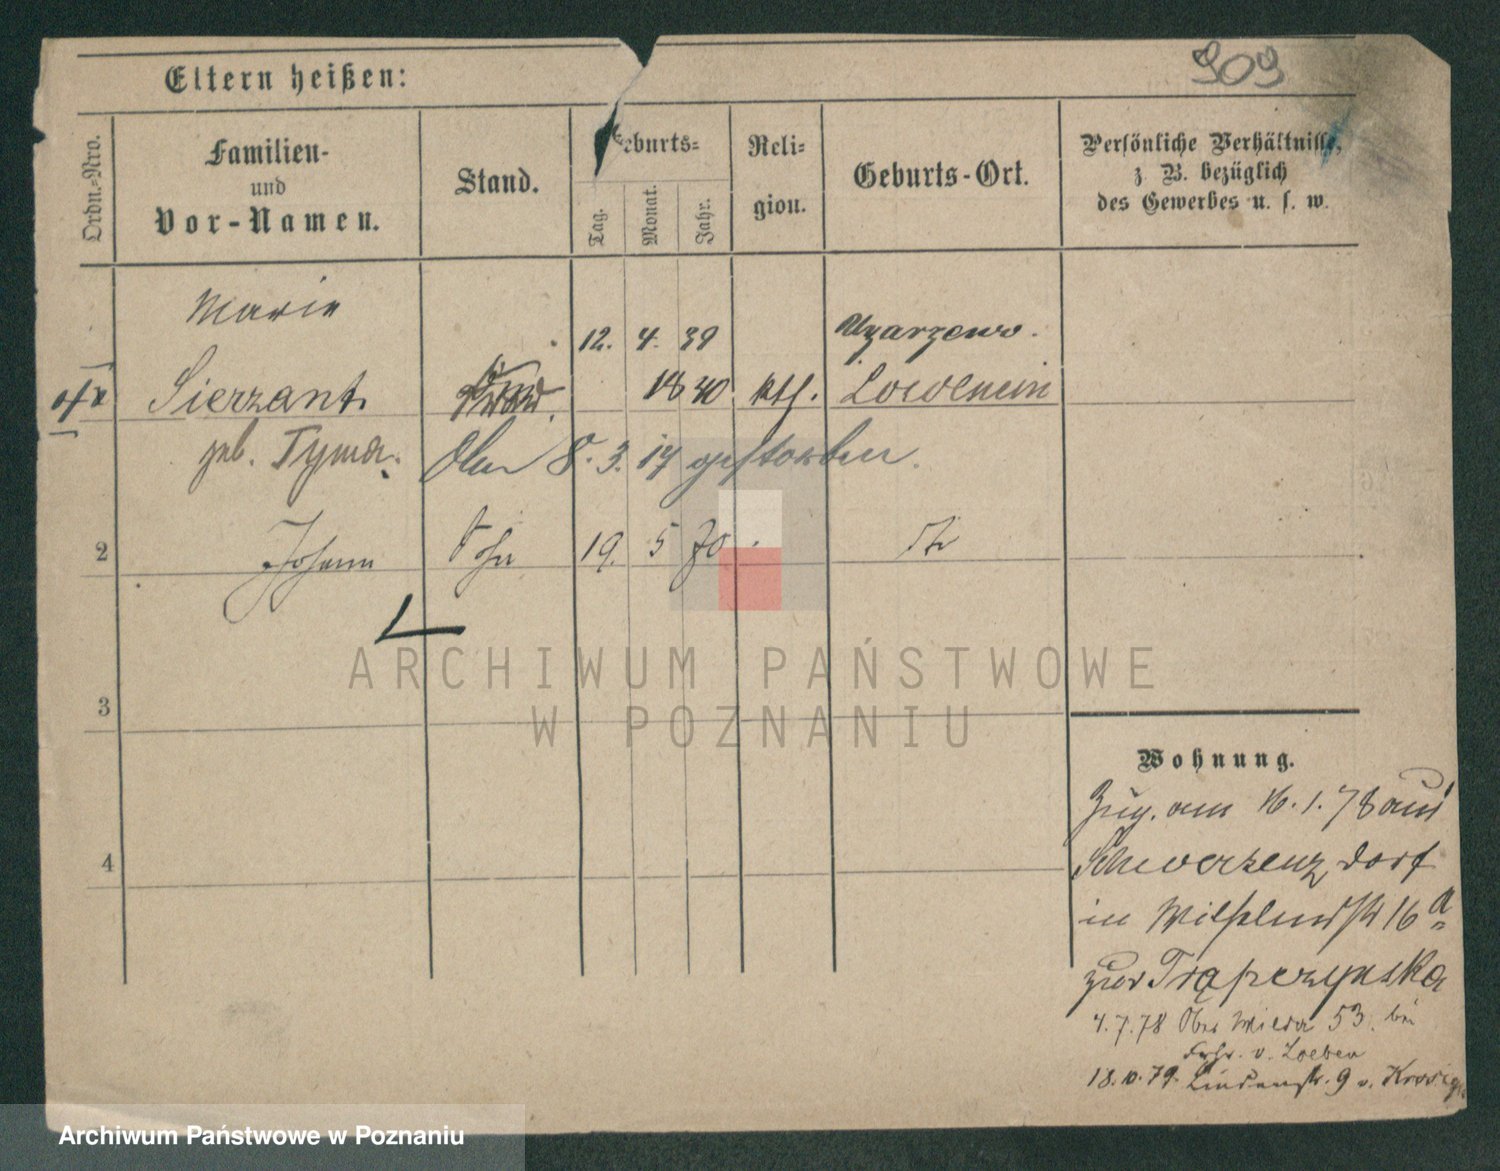 909
Eltern heißen:
Ordn.-Nro.
Familien-
und
Vor-Namen.
Stand.
Geburts-
Tag.
Monat.
Jahr.
Reli-
gion.
Geburts-Ort.
Persönliche Verhältnisse,
z. B. bezüglich
des Gewerbes u. s. w.
Marie
12. 4. 39 Uzarzewo.
Sierzant 1840 kth.
geb. Tyma. Am 8. 3. 17 gestorben.
2 Johann Sohn 19. 5 70
3
4
Wohnung.
Zug. am 16. 1. 78 aus
Schwersenz dorf
in Wilhelmstr 16 a
zur Trąpczynska
4. 7. 78 Ober Wilda 53. bei
Frhr. v. Loeben
18. 10. 79. Lindenstr. 9 v. Krosigk
ARCHIWUM PAŃSTWOWE
W POZNANIU
Archiwum Państwowe w Poznaniu